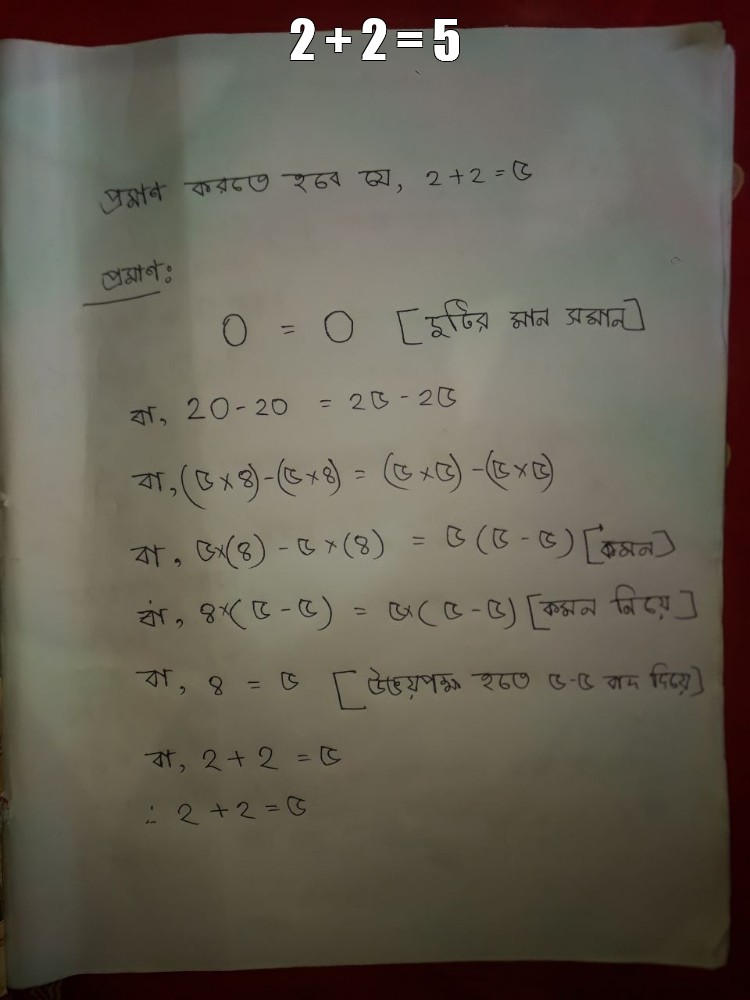 2 + 2 = 5
প্রমাণ করতে হবে যে, 2+2=৫
প্রমাণ:
0 = 0 [দুটির মান সমান]
বা, 20-20 = 2৫-2৫
বা, (৫×৪)-(৫×৪) = (৫×৫)-(৫×৫)
বা, ৫×(৪) - ৫×(৪) = ৫(৫-৫) [কমন]
বা, ৪×(৫-৫) = ৫×(৫-৫) [কমন নিয়ে]
বা, ৪ = ৫ [উভয়পক্ষ হতে ৫-৫ বাদ দিয়ে]
বা, 2+2 = ৫
∴ 2+2=৫